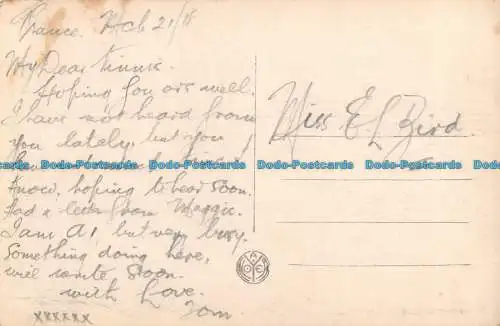 France. Mch 21/18
My Dear Minnie.
Hoping you are well.
I have not heard from
you lately, but you
know, hoping to hear soon.
Had a letter from Maggie.
I am A1, but very busy.
Something doing here,
will write soon.
with Love.
Tom.
xxxxxx
Miss E L Bird
Dodo-Postcards Dodo-Postcards Dodo-Postcards Dodo-Postcards